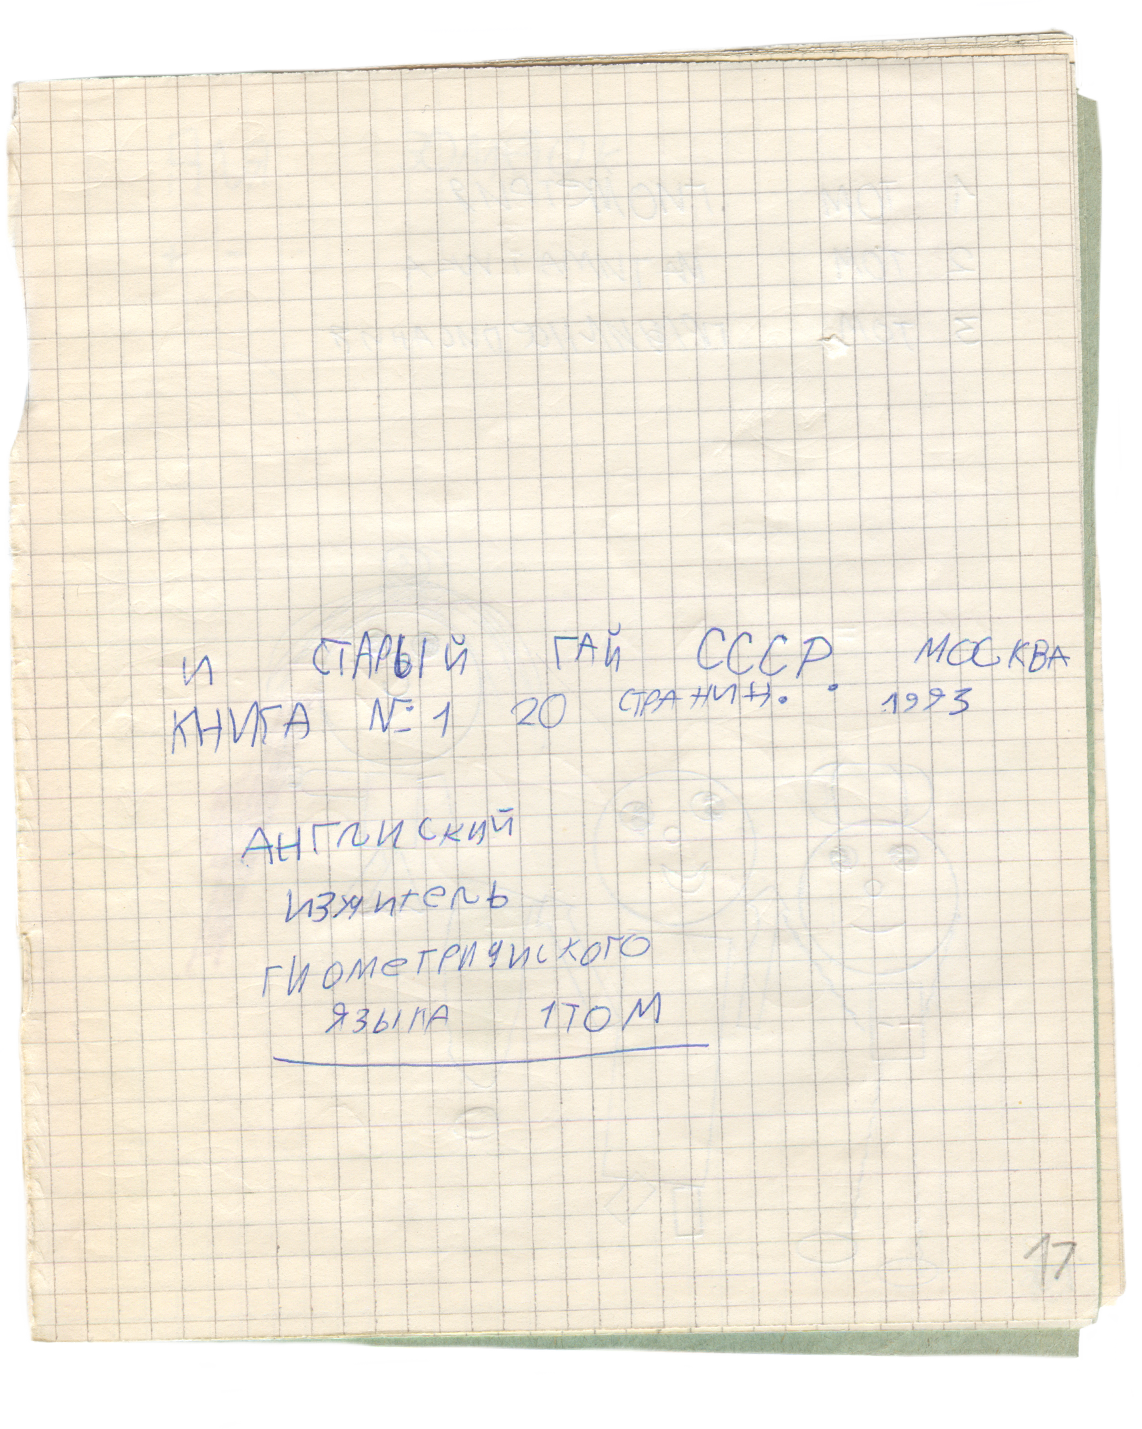 И СТАРЫЙ ГАЙ СССР. МОСКВА
КНИГА №1 20 СТРАНИН. 1993
АНГЛИСКИЙ
ИЗЖИТЕЛЬ
ГИОМЕТРИЧИСКОГО
ЯЗЫКА 1ТОМ
17